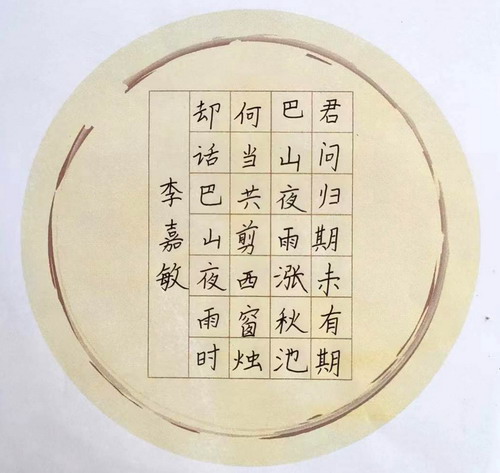 君问归期未有期
巴山夜雨涨秋池
何当共剪西窗烛
却话巴山夜雨时
李嘉敏